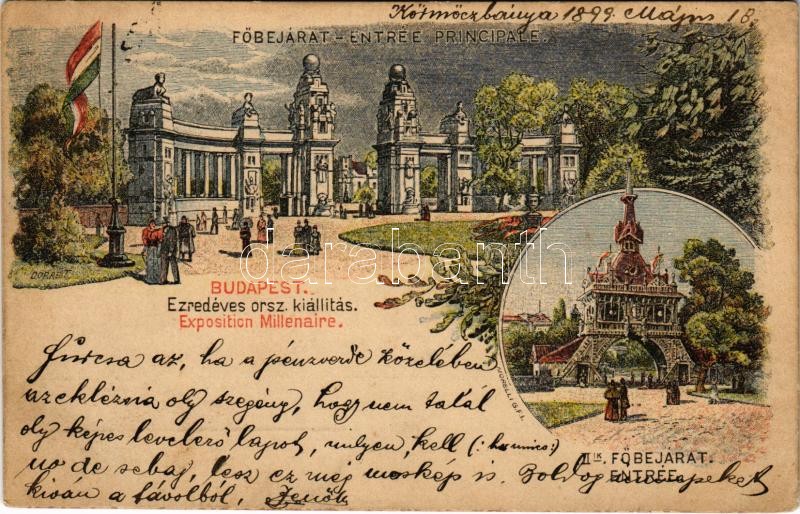 Körmöczbánya 1899. Május 18.
FŐBEJÁRAT – ENTRÉE PRINCIPALE.
DÖRRE T.
darabanth
BUDAPEST.
Ezredéves orsz. kiállitás.
Exposition Millenaire.
MORELLI G. F. I.
II IK. FŐBEJÁRAT.
ENTRÉE.
Furcsa az, ha a pénzverde közelében
az eklézsia oly szegény, hogy nem talál
oly képes levelező lapot, milyen kell
no de sebaj, lesz ez még máskép is. Boldog
kiván a távolból, Jenő